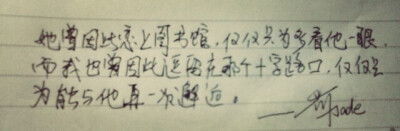 她曾因此恋上图书馆，仅仅只为多看他一眼，
而我也曾因此逗留在那个十字路口，仅仅是
为能与他再一次邂逅。
——Jade